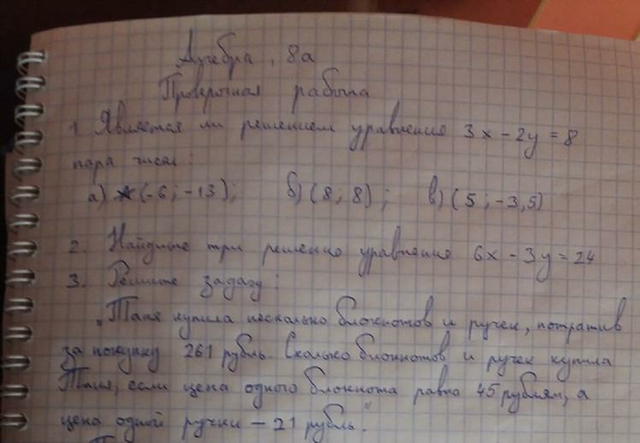 Алгебра, 8а
Проверочная работа
1. Является ли решением уравнения 3x - 2y = 8
пара чисел:
а) (-6; -13); б) (8; 8); в) (5; -3,5)
2. Найдите три решения уравнения 6x - 3y = 24
3. Решите задачу:
„Таня купила несколько блокнотов и ручек, потратив
за покупку 261 рубль. Сколько блокнотов и ручек купила
Таня, если цена одного блокнота равна 45 рублям, а
цена одной ручки - 21 рубль."